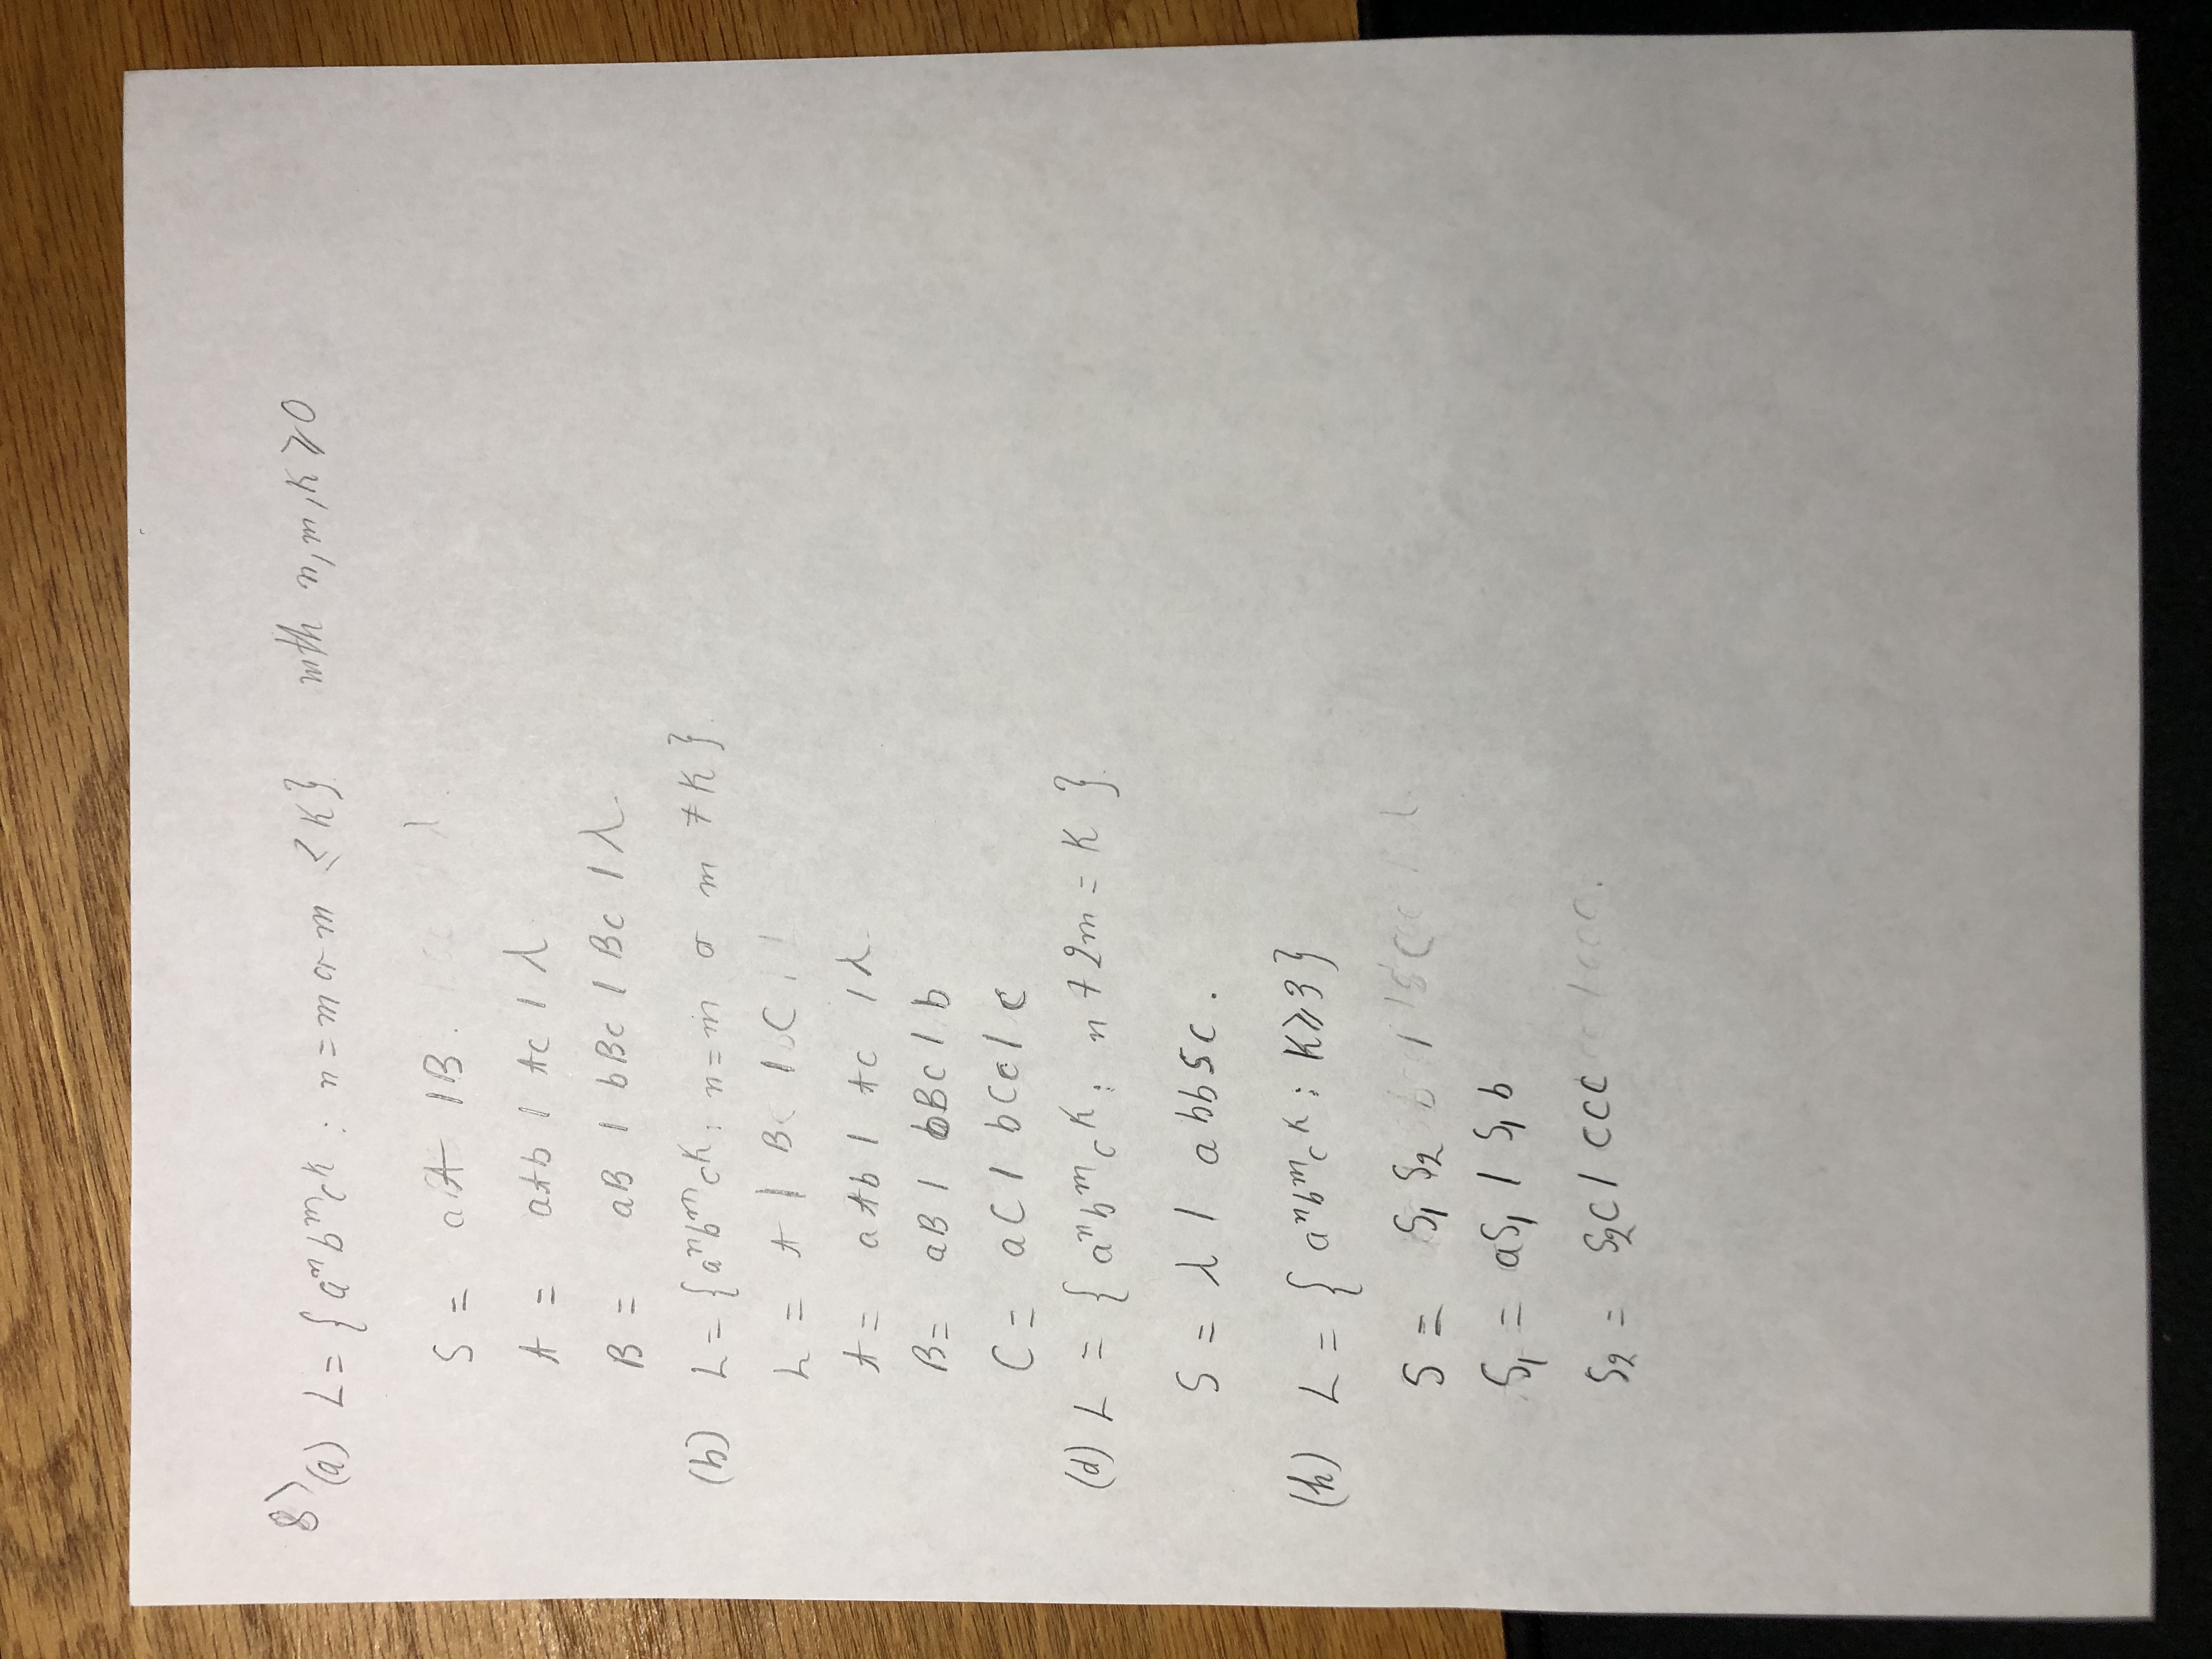 8)
(a) L = { aⁿbᵐcᵏ : n = m or m ≤ K } with n, m, K ⩾ 0
S = aA | B.
A = aAb | Ac | λ
B = aB | bBc | Bc | λ.
(b) L = { aⁿbᵐcᵏ : n = m or m ≠ K }.
L = A | B | C
A = aAb | Ac | λ.
B = aB | bBc | b
C = aC | bCc | c
(d) L = { aⁿbᵐcᵏ : n + 2m = K }.
S = λ | abbSc.
(h) L = { aⁿbᵐcᵏ : K ⩾ 3 }
S = S₁ S₂
S₁ = aS₁ | S₁ b
S₂ = S₂c | ccc